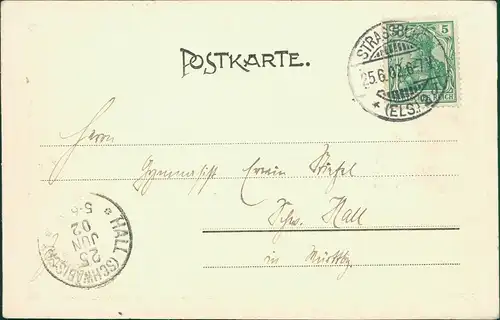 POSTKARTE.
STRASSBURG
25.6.02.6-7
* (ELS.) 2
5
REICH
Herrn
Gymnasist Erwin
Schw. Hall
in Württbg.
* HALL (SCHWÄBISCH) *
25
JUN
02
5-6